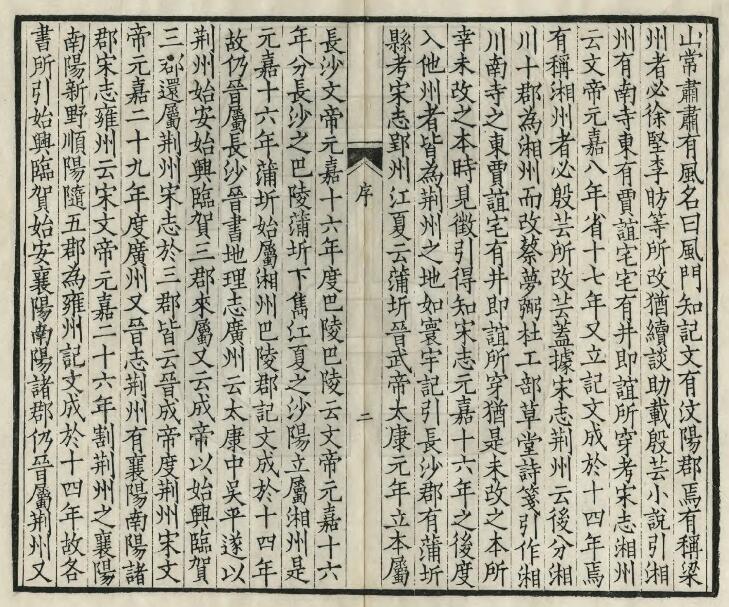 山常肅肅有風名曰風門知記文有汶陽郡焉有稱梁
州者必徐堅李昉等所改猶續談助載殷芸小說引湘
州有南寺東有賈誼宅宅有井即誼所穿考宋志湘州
云文帝元嘉八年省十七年又立記文成於十四年焉
有稱湘州者必殷芸所改芸蓋據宋志荆州云後分湘
川十郡為湘州而改蔡夢弼杜工部草堂詩箋引作湘
川南寺之東賈誼宅有井即誼所穿猶是未改之本所
幸未改之本時見徵引得知宋志元嘉十六年之後度
入他州者皆為荆州之地如寰宇記引長沙郡有蒲圻
縣考宋志郢州江夏云蒲圻晉武帝太康元年立本屬
序
二
長沙文帝元嘉十六年度巴陵巴陵云文帝元嘉十六
年分長沙之巴陵蒲圻下雋江夏之沙陽立屬湘州是
元嘉十六年蒲圻始屬湘州巴陵郡記文成於十四年
故仍晉屬長沙晉書地理志廣州云太康中吳平遂以
荆州始安始興臨賀三郡來屬又云成帝以始興臨賀
三郡還屬荆州宋志於三郡皆云晉成帝度荆州宋文
帝元嘉二十九年度廣州又晉志荆州有襄陽南陽諸
郡宋志雍州云宋文帝元嘉二十六年割荆州之襄陽
南陽新野順陽隨五郡為雍州記文成於十四年故各
書所引始興臨賀始安襄陽南陽諸郡仍晉屬荆州又